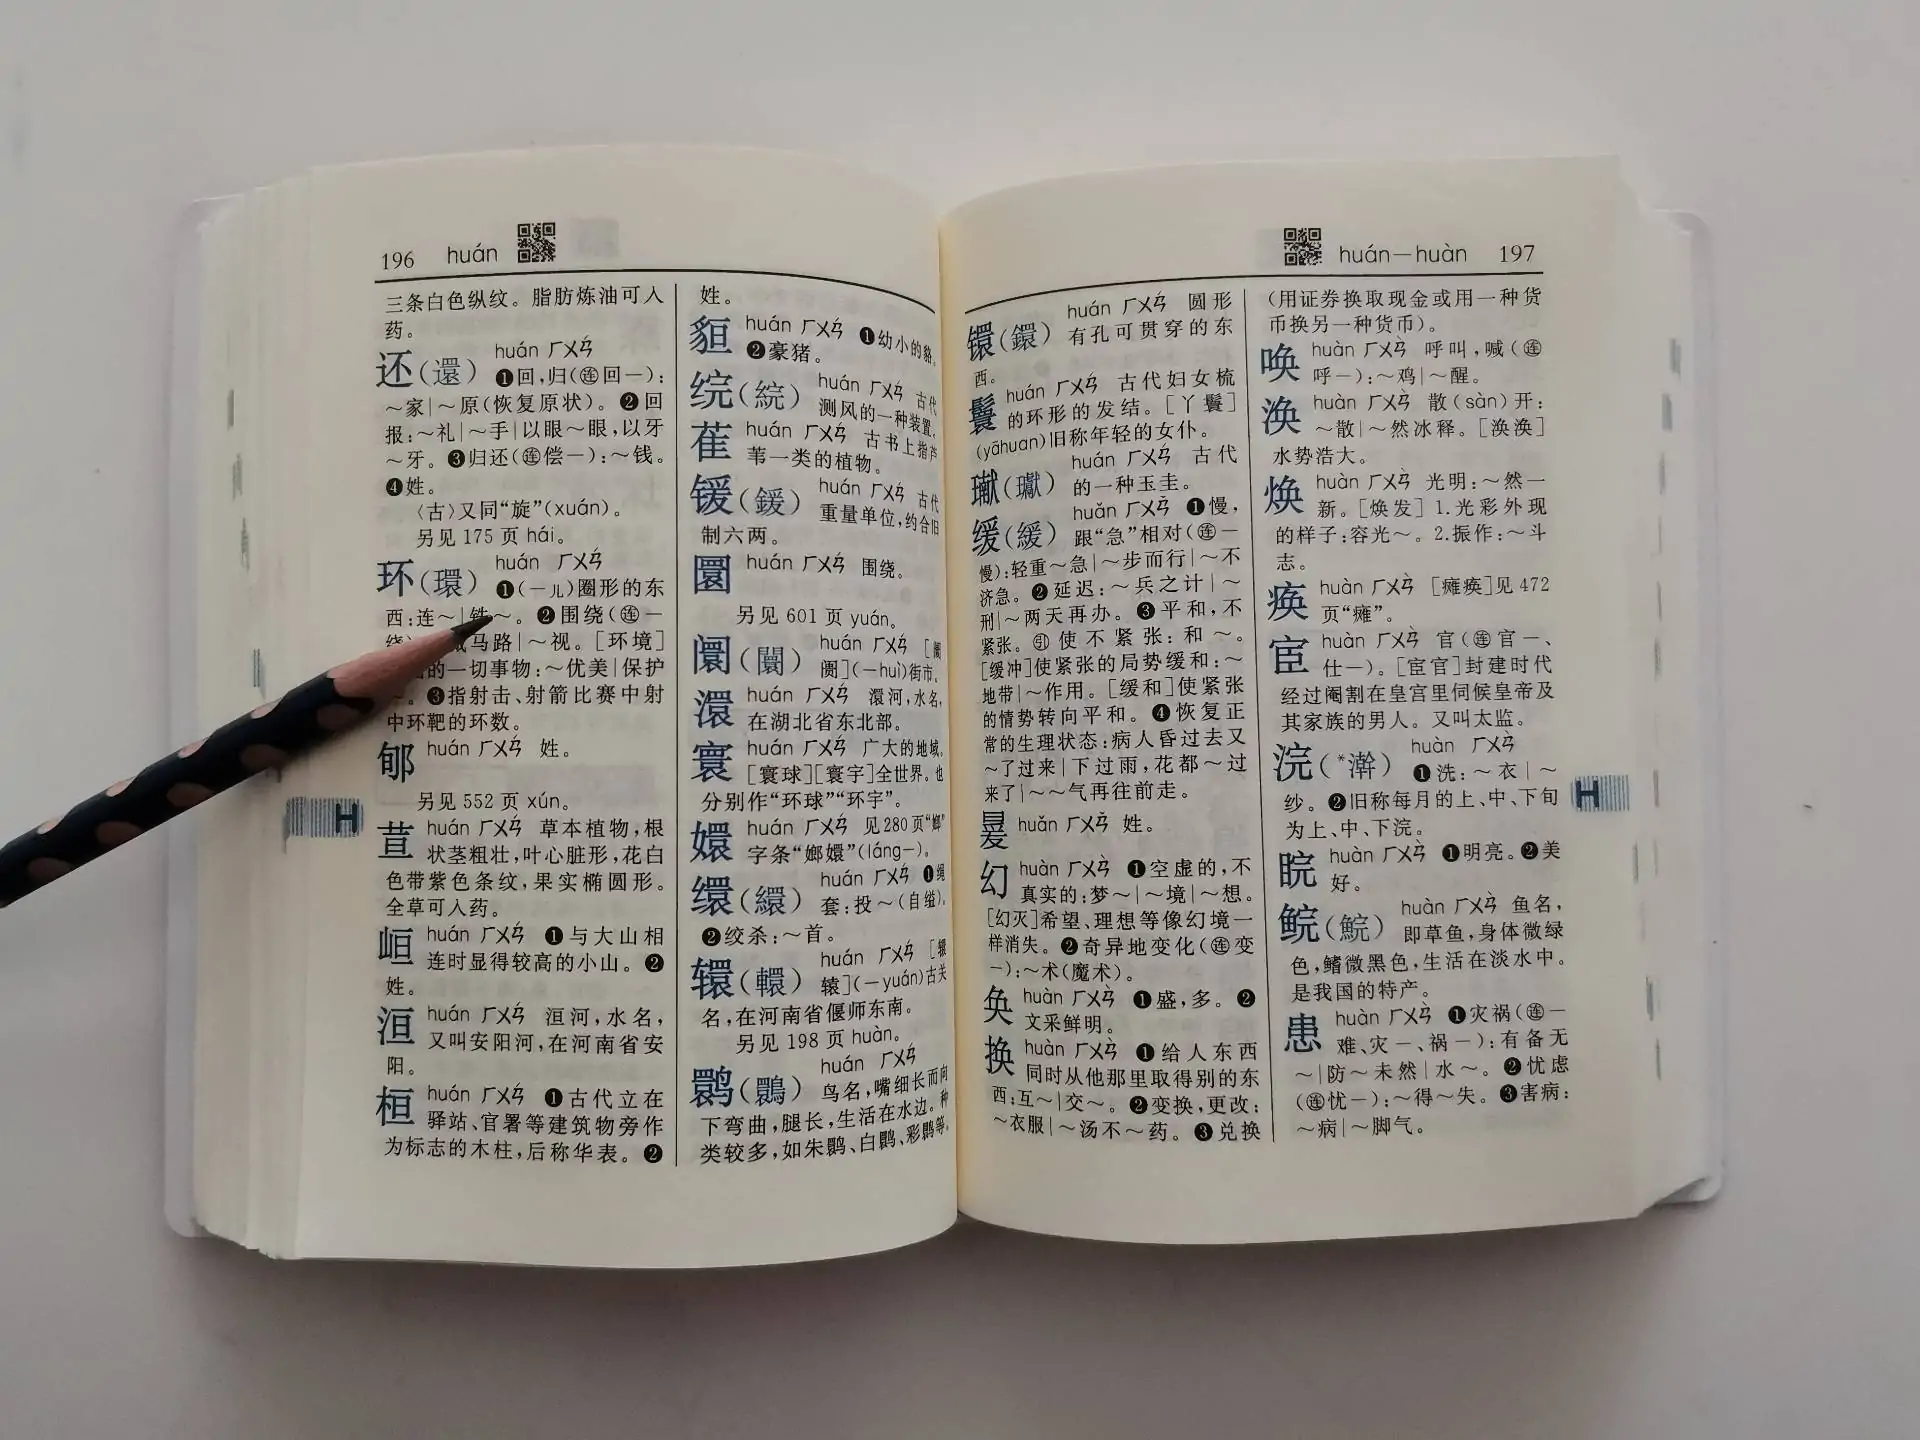 196 huán
三条白色纵纹。脂肪炼油可入
药。
还(還) huán ㄏㄨㄢˊ
❶回,归(连回一):
～家|～原(恢复原状)。❷回
报:～礼|～手|以眼～眼,以牙
～牙。❸归还(连偿一):～钱。
❹姓。
〈古〉又同“旋”(xuán)。
另见175页 hái。
环(環) huán ㄏㄨㄢˊ
❶(一儿)圈形的东
西:连～|铁～。❷围绕(连一
马路|～视。[环境]
的一切事物:～优美|保护
～。❸指射击、射箭比赛中射
中环靶的环数。
郇 huán ㄏㄨㄢˊ 姓。
另见552页 xún。
荁 huán ㄏㄨㄢˊ 草本植物,根
状茎粗壮,叶心脏形,花白
色带紫色条纹,果实椭圆形。
全草可入药。
峘 huán ㄏㄨㄢˊ ❶与大山相
连时显得较高的小山。❷
姓。
洹 huán ㄏㄨㄢˊ 洹河,水名,
又叫安阳河,在河南省安
阳。
桓 huán ㄏㄨㄢˊ ❶古代立在
驿站、官署等建筑物旁作
为标志的木柱,后称华表。❷
姓。
貆 huán ㄏㄨㄢˊ ❶幼小的貉。
❷豪猪。
综(綄) huán ㄏㄨㄢˊ 古代
测风的一种装置。
萑 huán ㄏㄨㄢˊ 古书上指芦
苇一类的植物。
锾(鍰) huán ㄏㄨㄢˊ 古代
重量单位,约合旧
制六两。
圜 huán ㄏㄨㄢˊ 围绕。
另见601页 yuán。
阛(闤) huán ㄏㄨㄢˊ [阛
阓](一huì)街市。
澴 huán ㄏㄨㄢˊ 澴河,水名,
在湖北省东北部。
寰 huán ㄏㄨㄢˊ 广大的地域。
[寰球][寰宇]全世界。也
分别作“环球”“环宇”。
嬛 huán ㄏㄨㄢˊ 见280页“嫏”
字条“嫏嬛”(láng一)。
缳(繯) huán ㄏㄨㄢˊ ❶绳
套:投～(自缢)。
❷绞杀:～首。
轘(轘) huán ㄏㄨㄢˊ [轘
辕](一yuán)古关
名,在河南省偃师东南。
另见198页 huàn。
鹮(䴉) huán ㄏㄨㄢˊ
鸟名,嘴细长而向
下弯曲,腿长,生活在水边。种
类较多,如朱鹮、白鹮、彩鹮等。
huán—huàn 197
镮(鐶) huán ㄏㄨㄢˊ 圆形
有孔可贯穿的东
西。
鬟 huán ㄏㄨㄢˊ 古代妇女梳
的环形的发结。[丫鬟]
(yāhuan)旧称年轻的女仆。
瓛(瓛) huán ㄏㄨㄢˊ 古代
的一种玉圭。
缓(緩) huǎn ㄏㄨㄢˇ ❶慢,
跟“急”相对(连一
慢):轻重～急|～步而行|～不
济急。❷延迟:～兵之计|～
刑|～两天再办。❸平和,不
紧张。引使不紧张:和～。
[缓冲]使紧张的局势缓和:～
地带|～作用。[缓和]使紧张
的情势转向平和。❹恢复正
常的生理状态:病人昏过去又
～了过来|下过雨,花都～过
来了|～～气再往前走。
huǎn ㄏㄨㄢˇ 姓。
幻 huàn ㄏㄨㄢˋ ❶空虚的,不
真实的:梦～|～境|～想。
[幻灭]希望、理想等像幻境一
样消失。❷奇异地变化(连变
一):～术(魔术)。
奂 huàn ㄏㄨㄢˋ ❶盛,多。❷
文采鲜明。
换 huàn ㄏㄨㄢˋ ❶给人东西
同时从他那里取得别的东
西:互～|交～。❷变换,更改:
～衣服|～汤不～药。❸兑换
(用证券换取现金或用一种货
币换另一种货币)。
唤 huàn ㄏㄨㄢˋ 呼叫,喊(连
呼一):～鸡|～醒。
涣 huàn ㄏㄨㄢˋ 散(sàn)开:
～散|～然冰释。[涣涣]
水势浩大。
焕 huàn ㄏㄨㄢˋ 光明:～然一
新。[焕发]1.光彩外现
的样子:容光～。2.振作:～斗
志。
痪 huàn ㄏㄨㄢˋ [瘫痪]见472
页“瘫”。
宦 huàn ㄏㄨㄢˋ 官(连官一、
仕一)。[宦官]封建时代
经过阉割在皇宫里伺候皇帝及
其家族的男人。又叫太监。
浣(*澣) huàn ㄏㄨㄢˋ
❶洗:～衣|～
纱。❷旧称每月的上、中、下旬
为上、中、下浣。
睆 huàn ㄏㄨㄢˋ ❶明亮。❷美
好。
鲩(鯇) huàn ㄏㄨㄢˋ 鱼名,
即草鱼,身体微绿
色,鳍微黑色,生活在淡水中。
是我国的特产。
患 huàn ㄏㄨㄢˋ ❶灾祸(连一
难、灾一、祸一):有备无
～|防～未然|水～。❷忧虑
(连忧一):～得～失。❸害病:
～病|～脚气。
H
H